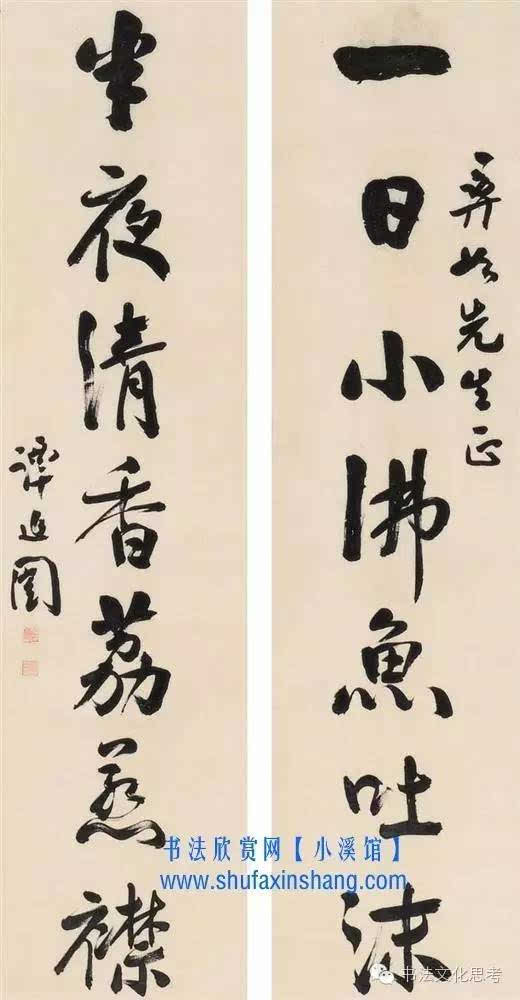 先生正
一日小沸魚吐沫
半夜清香荔惹襟
譚延闓
书法欣赏网【小溪馆】
www.shufaxinshang.com
书法文化思考